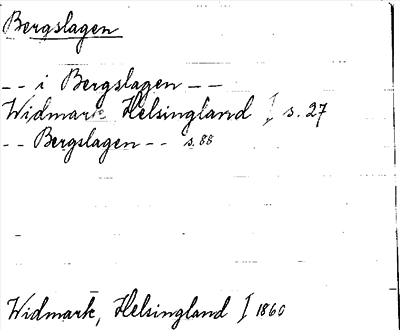 Bergslagen
-- i Bergslagen --
Widmark Helsingland I s. 27
-- Bergslagen -- s. 88
Widmark, Helsingland I 1860